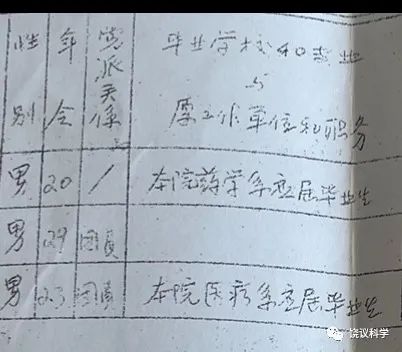 性别 年令 党派关系 毕业学校和专业与原工作单位和职务
男 20 / 本院药学系应届毕业生
男 29 团员
男 23 团员 本院医疗系应届毕业生
饶议科学